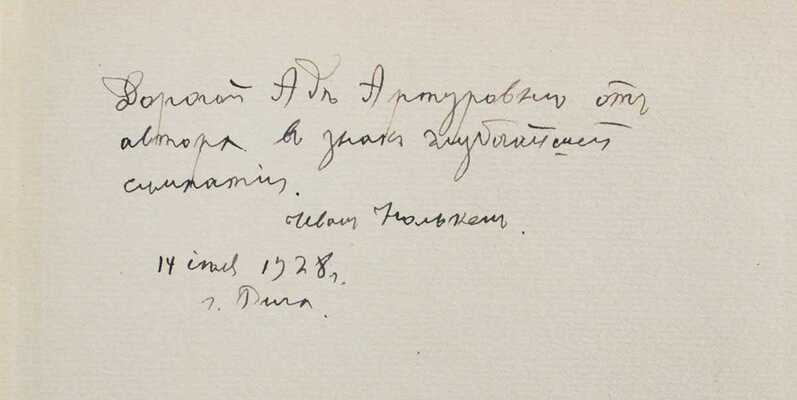 Дорогой Адѣ Артуровнѣ отъ
автора въ знакъ глубочайшей
симпатіи.
Иванъ Нолькенъ.
14 1928 г.
г. Рига.